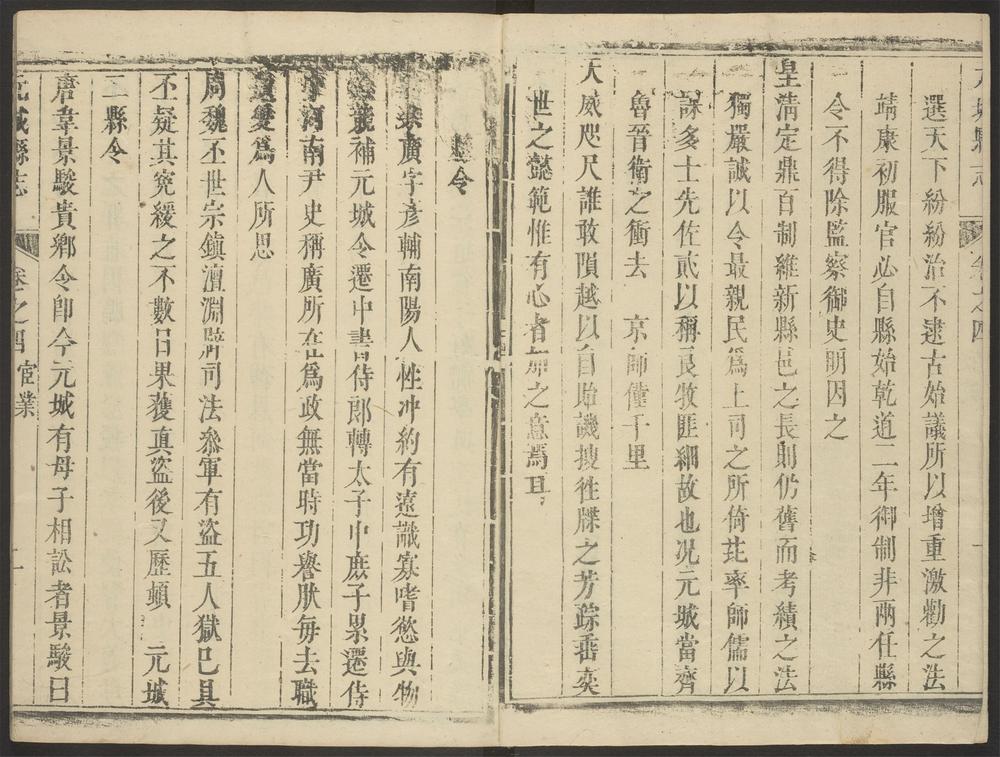 選天下紛紛治不逮古始議所以增重激勸之法
靖康初服官必自縣始乾道二年御制非兩任縣
令不得除監察御史明因之
皇清定鼎百制維新縣邑之長則仍舊而考績之法
獨嚴誠以令最親民爲上司之所倚茈率師儒以
課多士先佐貳以稱良牧匪細故也况元城當齊
魯晉衛之衝去 京師僅千里
天威咫尺誰敢隕越以自貽譏搜徃牒之芳踪垂奕
世之懿範惟有心者加之意焉耳
縣令
廣字彦輔南陽人性冲約有遠識寡嗜慾與物
無競補元城令遷中書侍郎轉太子中庶子累遷侍
中河南尹史稱廣所在爲政無當時功譽然毎去職
遺愛爲人所思
周魏丕世宗鎮澶淵時司法叅軍有盜五人獄已具
丕疑其寃緩之不數日果獲真盜後又歷頓 元城
二縣令
唐韋景駿貴鄉令卽今元城有母子相訟者景駿曰
元城縣志 卷之四 宦業